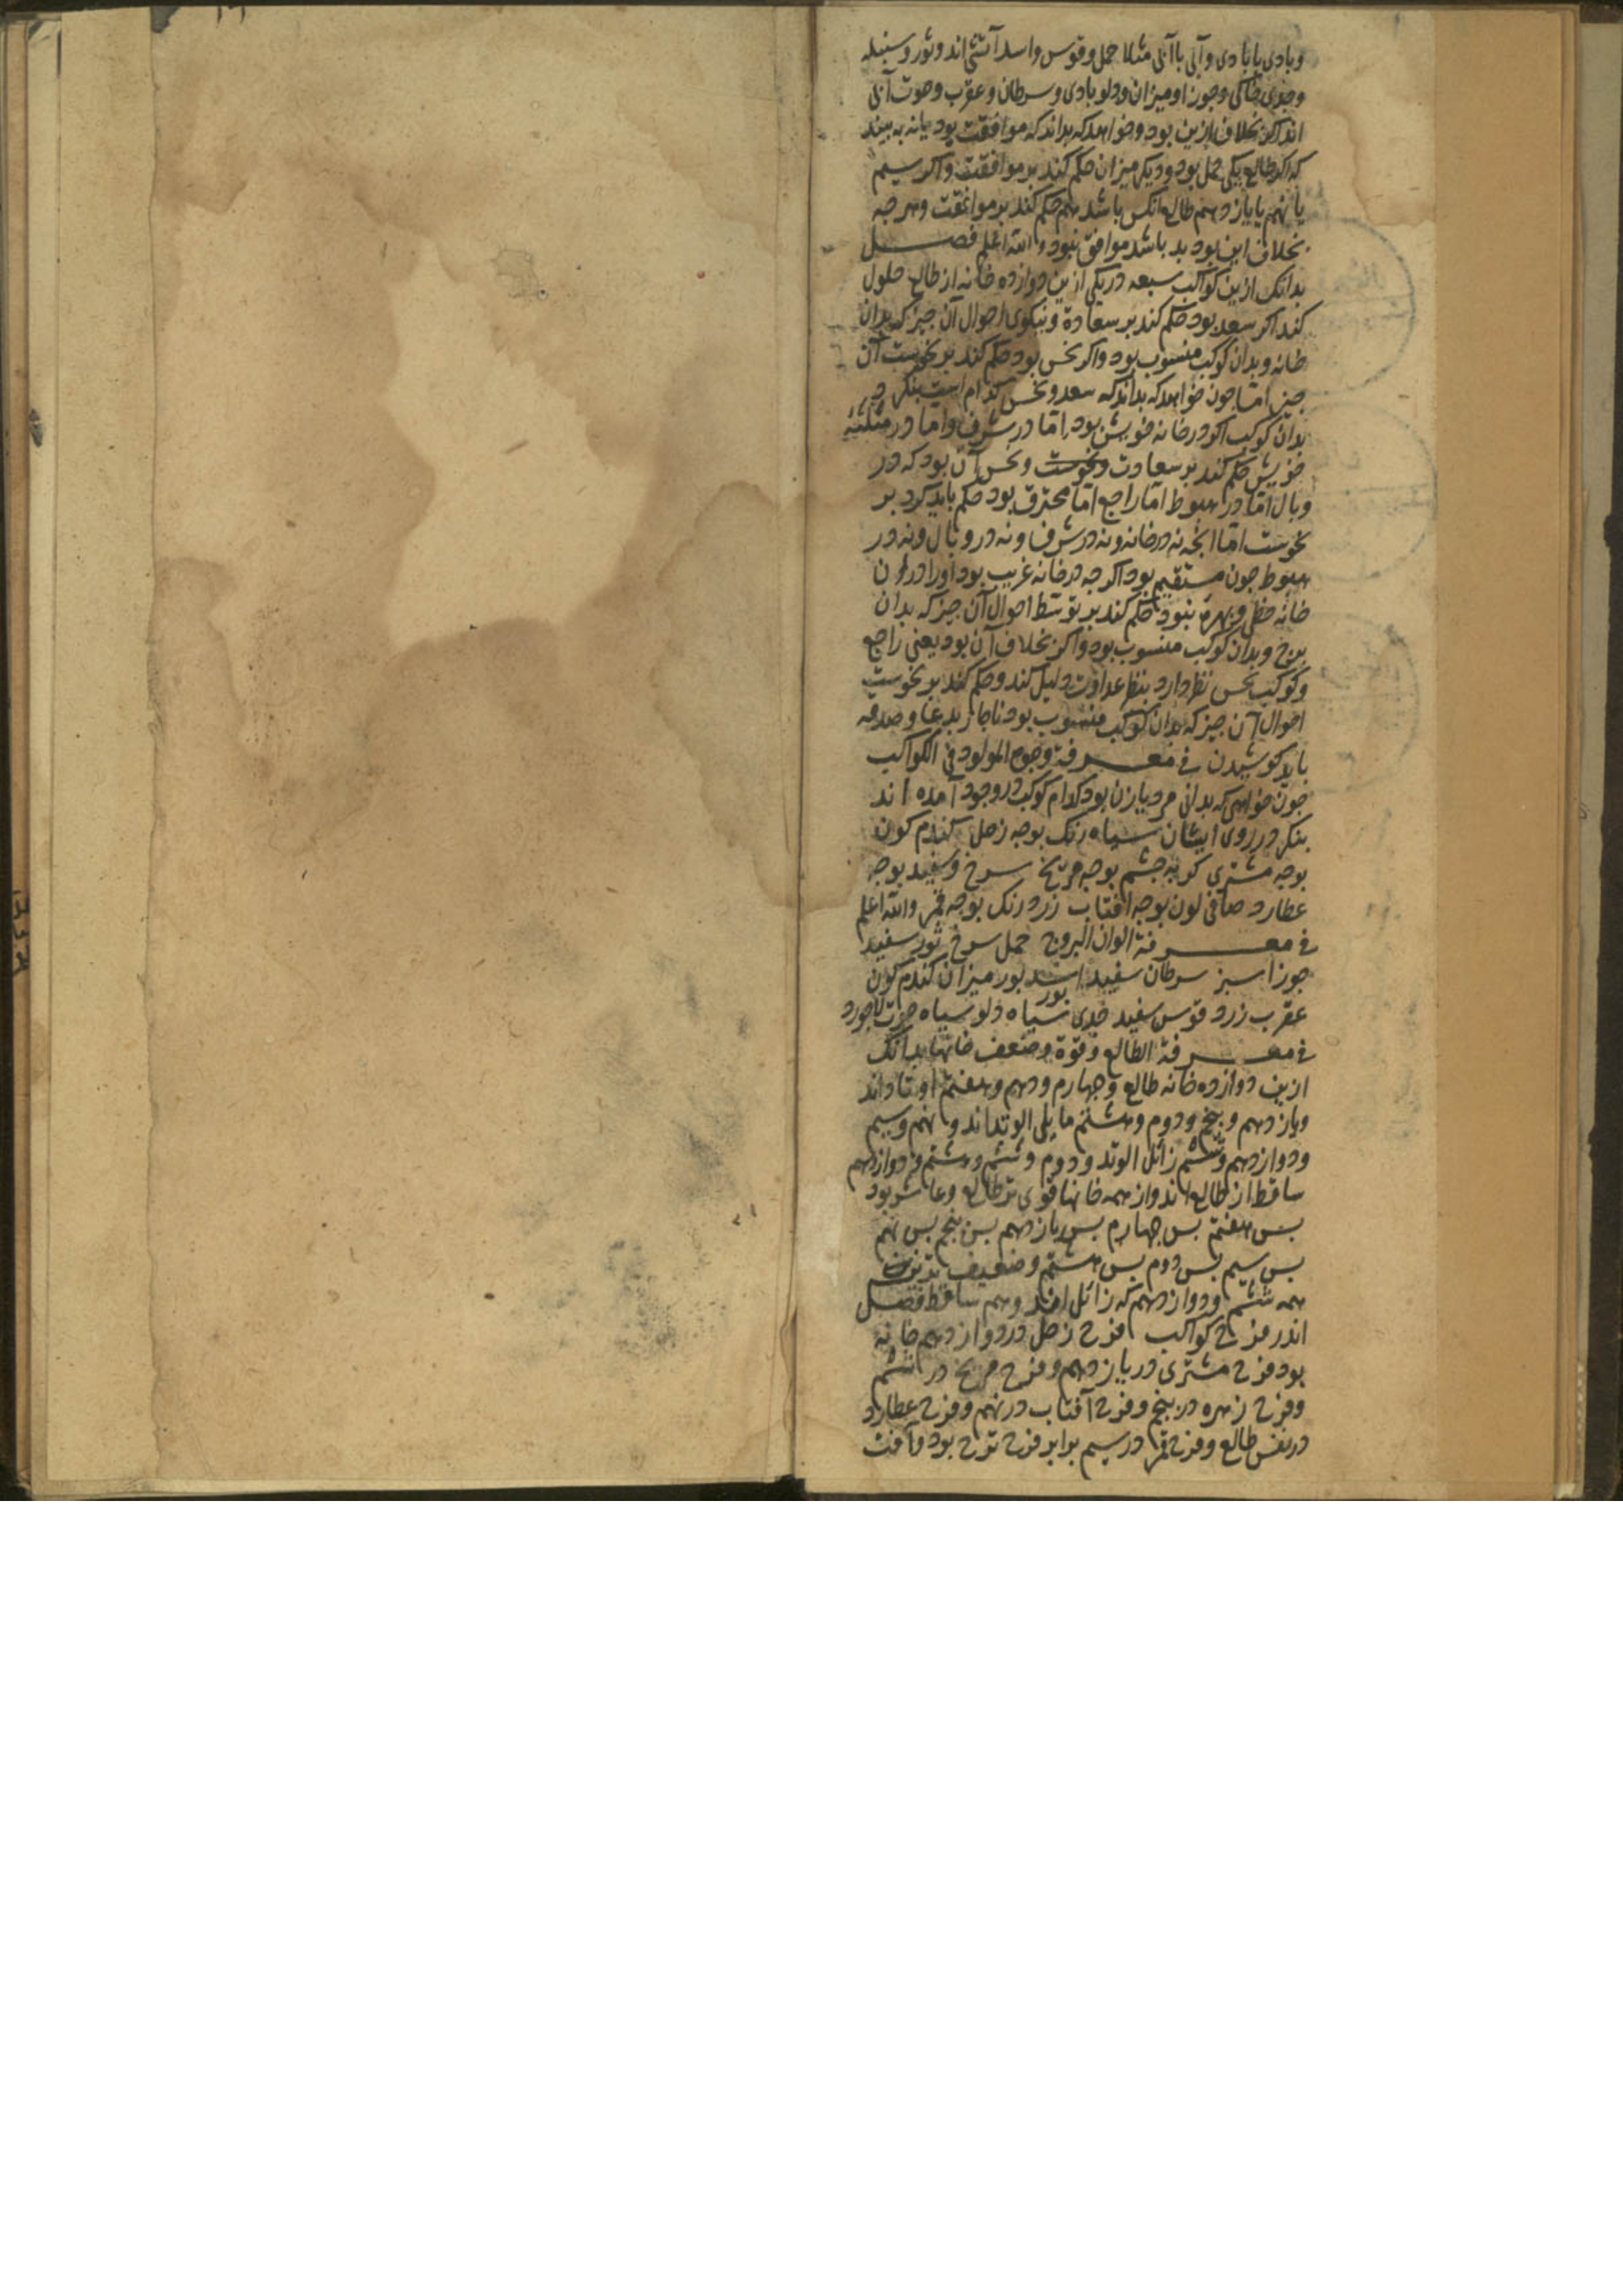 وبادی یا بادی وآبی باآبی مثلا حمل وقوس واسد آتشی اند وثور وسنبله
وجدی خاکی وجوزا ومیزان ودلو بادی وسرطان وعقرب وحوت آبی
اند اکر بخلاف ازین بود وخواهد که بداند که موافقت بود یا نه به بیند
که اکر طالع یکی حمل بود ودیکر میزان حکم کند بر موافقت واکر سیم
یا نهم یا یازدهم طالع آنکس باشد هم حکم کند بر موافقت وهرچه
بخلاف این بود بد باشد موافق نبود والله اعلم فصل
بدانک ازین کواکب سبعه در یکی ازین دوازده خانه از طالع حلول
کند اکر سعد بود حکم کند بر سعادة ونیکوی احوال آن جیز که بدان
خانه وبدان کوکب منسوب بود واکر نحس بود حکم کند بر نحوست آن
جیز اما جون خواهد که بداند که سعد ونحس کدام است بنکرد
بدان کوکب اکر در خانه خویش بود اما در شرف واما در مثلثه
خویش حکم کند بر سعادت ونحوست ونحس آن بود که در
وبال اما در هبوط اما راجع اما محترق بود حکم باید کرد بر
نحوست اما انجه نه در خانه ونه در شرف ونه در وبال ونه در
هبوط جون مستقیم بود اکر جه در خانه غریب بود اورا در آن
خانه حظی وبهره نبود حکم کند بر توسط احوال آن جیز که بدان
برج وبدان کوکب منسوب بود واکر بخلاف آن بود یعنی راجع
وکوکب نحس نظر دارد بنظر عداوت دلیل کند وحکم کند بر نحوست
احوال آن جیز که بدان کوکب منسوب بود ناجار بدعا وصدقه
باید کوشیدن فی معرفة وجوه المولود فی الکواکب
جون خواهی که بدانی مرد یا زن بود کدام کوکب در وجود آمده اند
بنکر در روی ایشان سیاه رنک بوجه زحل کندم کون
بوجه مشتری کربه جشم بوجه مریخ سرخ وسفید بوجه
عطارد صافی لون بوجه افتاب زرد رنک بوجه قمر والله اعلم
فی معرفة الوان البروج حمل سرخ ثور سفید
جوزا سبز سرطان سفید اسد بور میزان کندم کون
بور
عقرب زرد قوس سفید جدی سیاه دلو سیاه حوت لاجورد
فی معرفة الطالع وقوة وضعف خانها بدانک
ازین دوازده خانه طالع وجهارم ودهم وهفتم اوتاد اند
ویازدهم وپنجم ودوم وهشتم مایلی الوتد اند ونهم وسیم
ودوازدهم وششم زائل الوتد ودوم وششم وهشتم ودوازدهم
ساقط از طالع اند واز همه خانها قوی تر طالع وعاشر بود
بس هفتم بس جهارم بس یازدهم بس پنجم بس نهم
بس سیم بس دوم بس هشتم وضعیف ترین
همه ششم ودوازدهم که زائل اند وهم ساقط فصل
اندر فرح کواکب فرح زحل در دوازدهم خانه
بود فرح مشتری در یازدهم وفرح مریخ در ششم
وفرح زهره در پنجم وفرح آفتاب در نهم وفرح عطارد
در نفس طالع وفرح قمر در سیم برابر فرح ترح بود وآفت